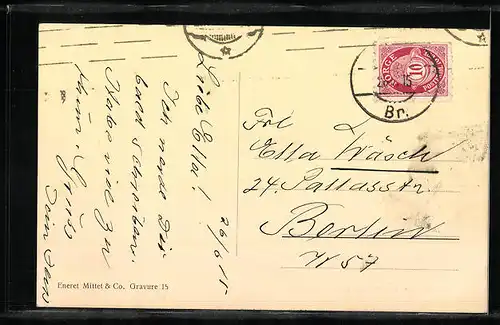 26/6 15
Liebe Ella!
Ich werde Dir
bald schreiben.
Habe viel zu
Gruß
Dein
Frl.
Ella Wäsch
24. Pallasstr.
Berlin
W 57
NORGE
10
15
Br.
Eneret Mittet & Co. Gravure 15